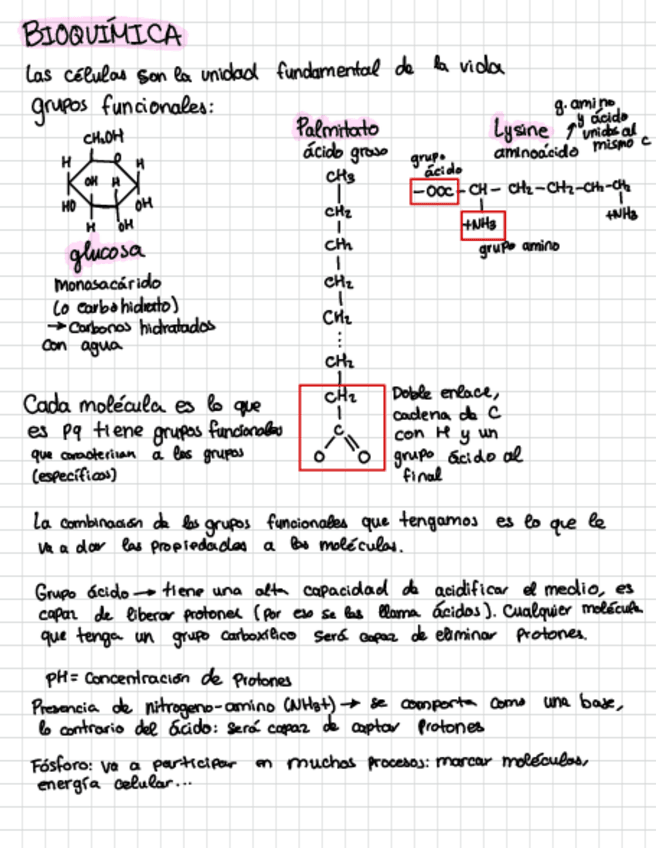 BIOQUÍMICA
Las células son la unidad fundamental de la vida
grupos funcionales:
CH₂OH
H
O
H
OH
H
HO
OH
H
OH
glucosa
Monosacárido
(o carbohidrato)
→ Carbonos hidratados
con agua
Palmitato
ácido graso
CH₃
CH₂
CH₂
CH₂
CH₂
CH₂
CH₂
C
O
O
Doble enlace,
cadena de C
con H y un
grupo ácido al
final
Lysine
aminoácido
g. amino
y ácido
unidos al
mismo C
grupo
ácido
-OOC - CH - CH₂ - CH₂ - CH₂ - CH₂
+NH₃
+NH₃
grupo amino
Cada molécula es lo que
es pq tiene grupos funcionales
que caracterizan a los grupos
(específicos)
La combinación de los grupos funcionales que tengamos es lo que le
va a dar las propiedades a las moléculas.
Grupo ácido → tiene una alta capacidad de acidificar el medio, es
capaz de liberar protones (por eso se les llama ácidos). Cualquier molécula
que tenga un grupo carboxílico será capaz de eliminar protones.
pH = Concentración de Protones
Presencia de nitrogeno-amino (NH3+) → se comporta como una base,
lo contrario del ácido: será capaz de captar Protones
Fósforo: va a participar en muchos procesos: marcar moléculas,
energía celular...